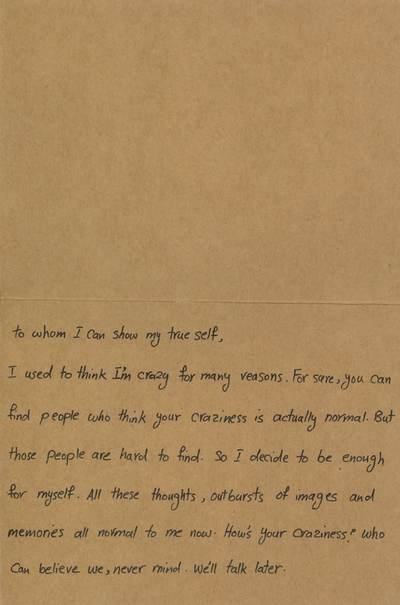 to whom I can show my true self,
I used to think I'm crazy for many reasons. For sure, you can
find people who think your craziness is actually normal. But
those people are hard to find. So I decide to be enough
for myself. All these thoughts, outbursts of images and
memories all normal to me now. How's your craziness? who
can believe we, never mind. We'll talk later.